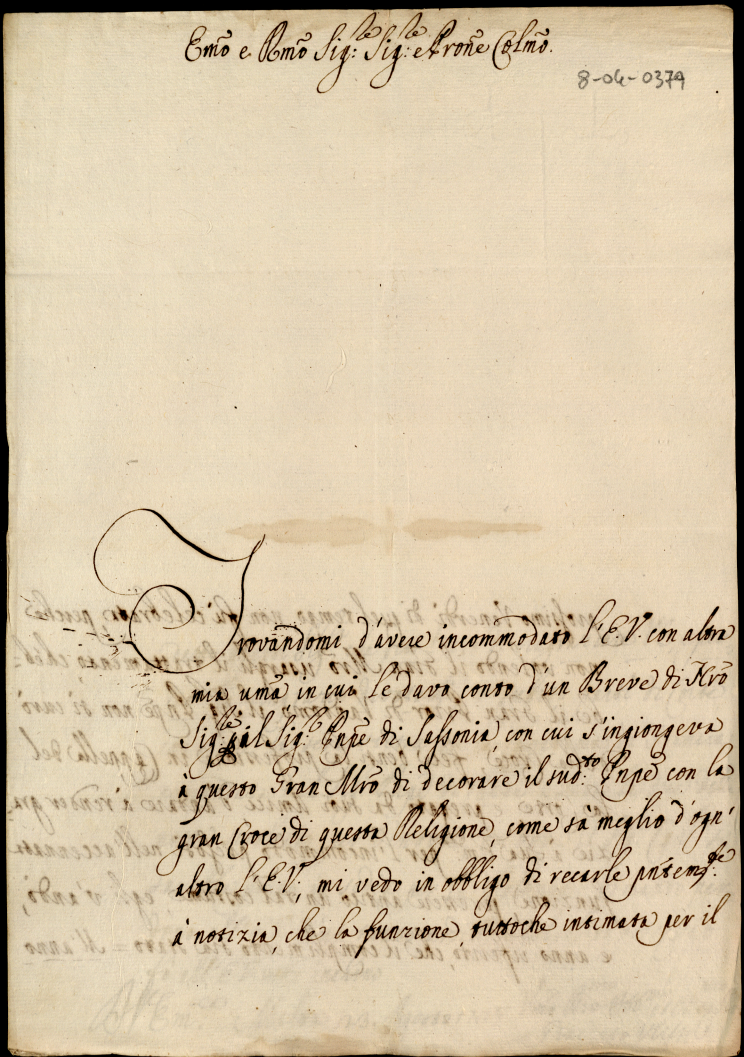 Emõ e Rmõ Sig:re Sig:re e Prone Colmõ.
8-04-0379
Trovandomi d'avere incommodato l'E.V. con altra
mia umã in cui le davo conto d'un Breve di Nrõ
Sig:re al Sig:r Pnpe di Sassonia, con cui s'ingiongeva
à questo Gran Mrõ di decorare il sud:to Pnpe con la
gran Croce di questa Religione, come sà meglio d'ogn'
altro l'E.V., mi vedo in obbligo di recarle pñtem:te
à notizia, che la funzione, tuttoche intimata per il